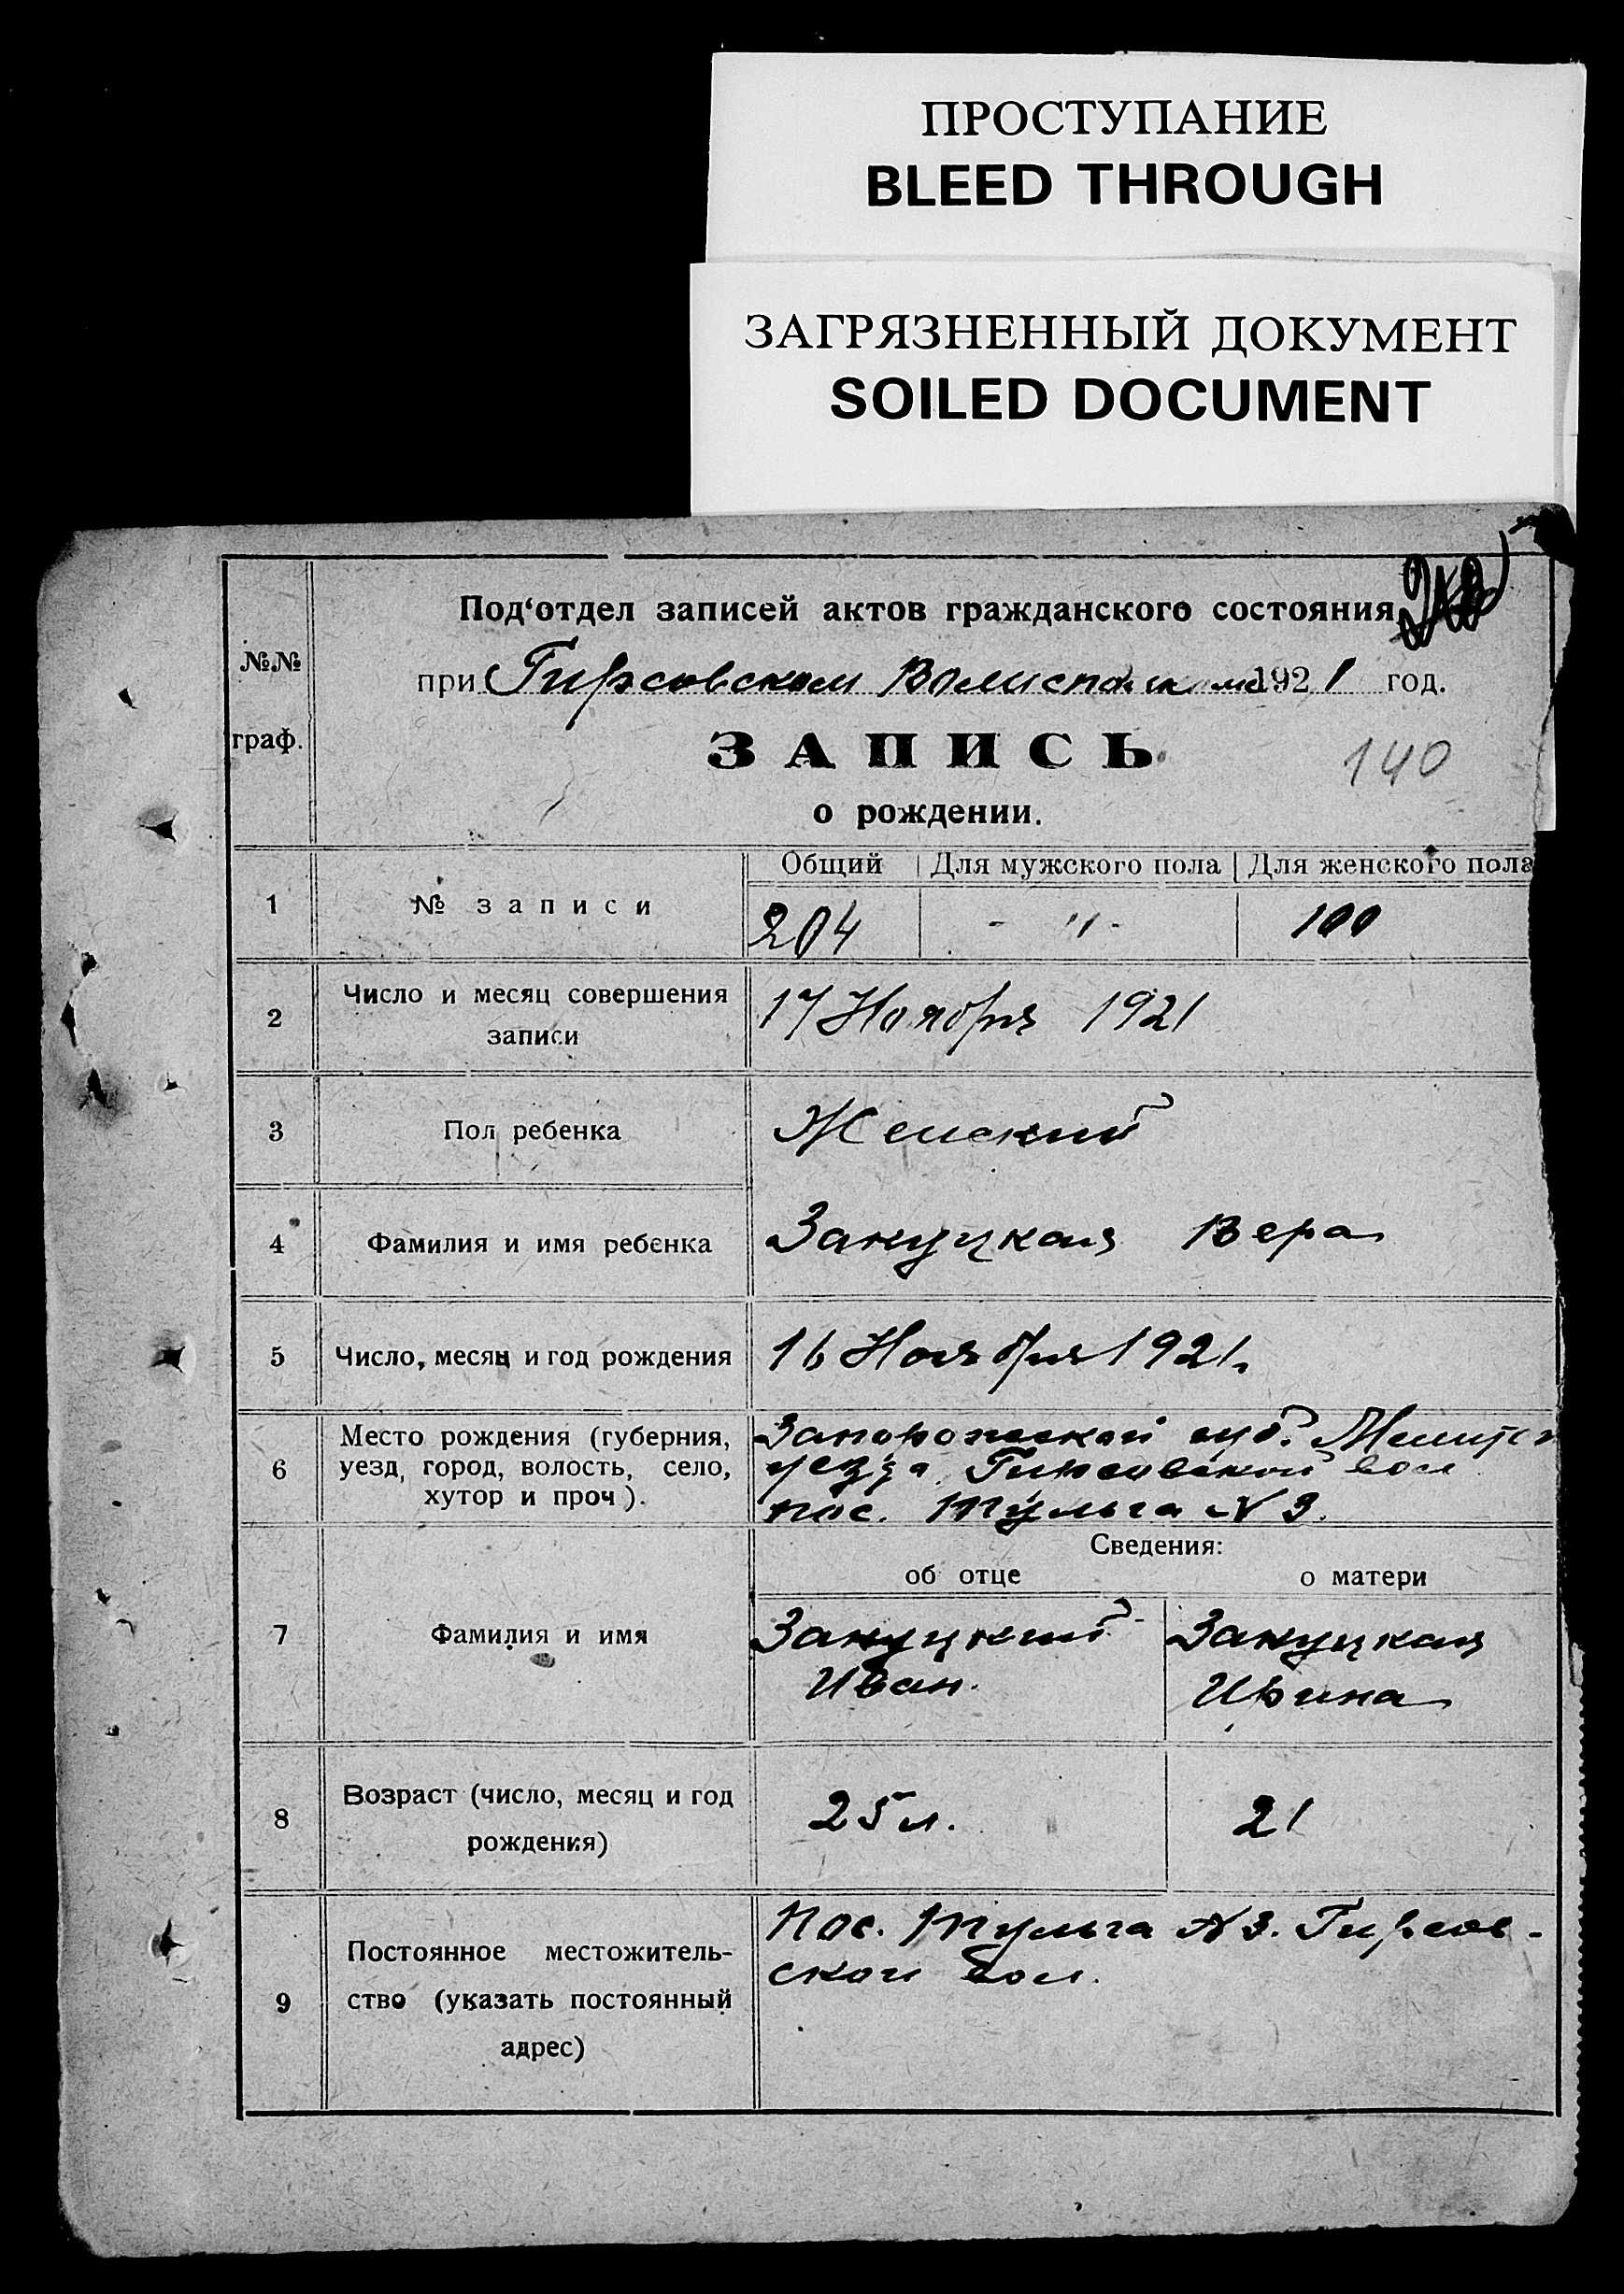 ПРОСТУПАНИЕ
BLEED THROUGH
ЗАГРЯЗНЕННЫЙ ДОКУМЕНТ
SOILED DOCUMENT
Под‘отдел записей актов гражданского состояния
№№ граф.
при Гирсовском Волисполкоме 1921 год.
ЗАПИСЬ
140
о рождении.
Общий Для мужского пола Для женского пола
1 № записи 204 - " - 100
2 Число и месяц совершения записи 17 Ноября 1921
3 Пол ребенка Женский
4 Фамилия и имя ребенка Зануцкая Вера
5 Число, месяц и год рождения 16 Ноября 1921.
6 Место рождения (губерния, Запорожской губ. Мелитоп
уезд, город, волость, село, уезда Гирсовской вол
хутор и проч). пос. Тульга № 3.
Сведения:
об отце о матери
7 Фамилия и имя Зануцкий Зануцкая
Иван. Ирина
8 Возраст (число, месяц и год рождения) 25 л. 21
9 Постоянное местожитель- Пос. Тульга № 3. Гирсов-
ство (указать постоянный ской вол.
адрес)